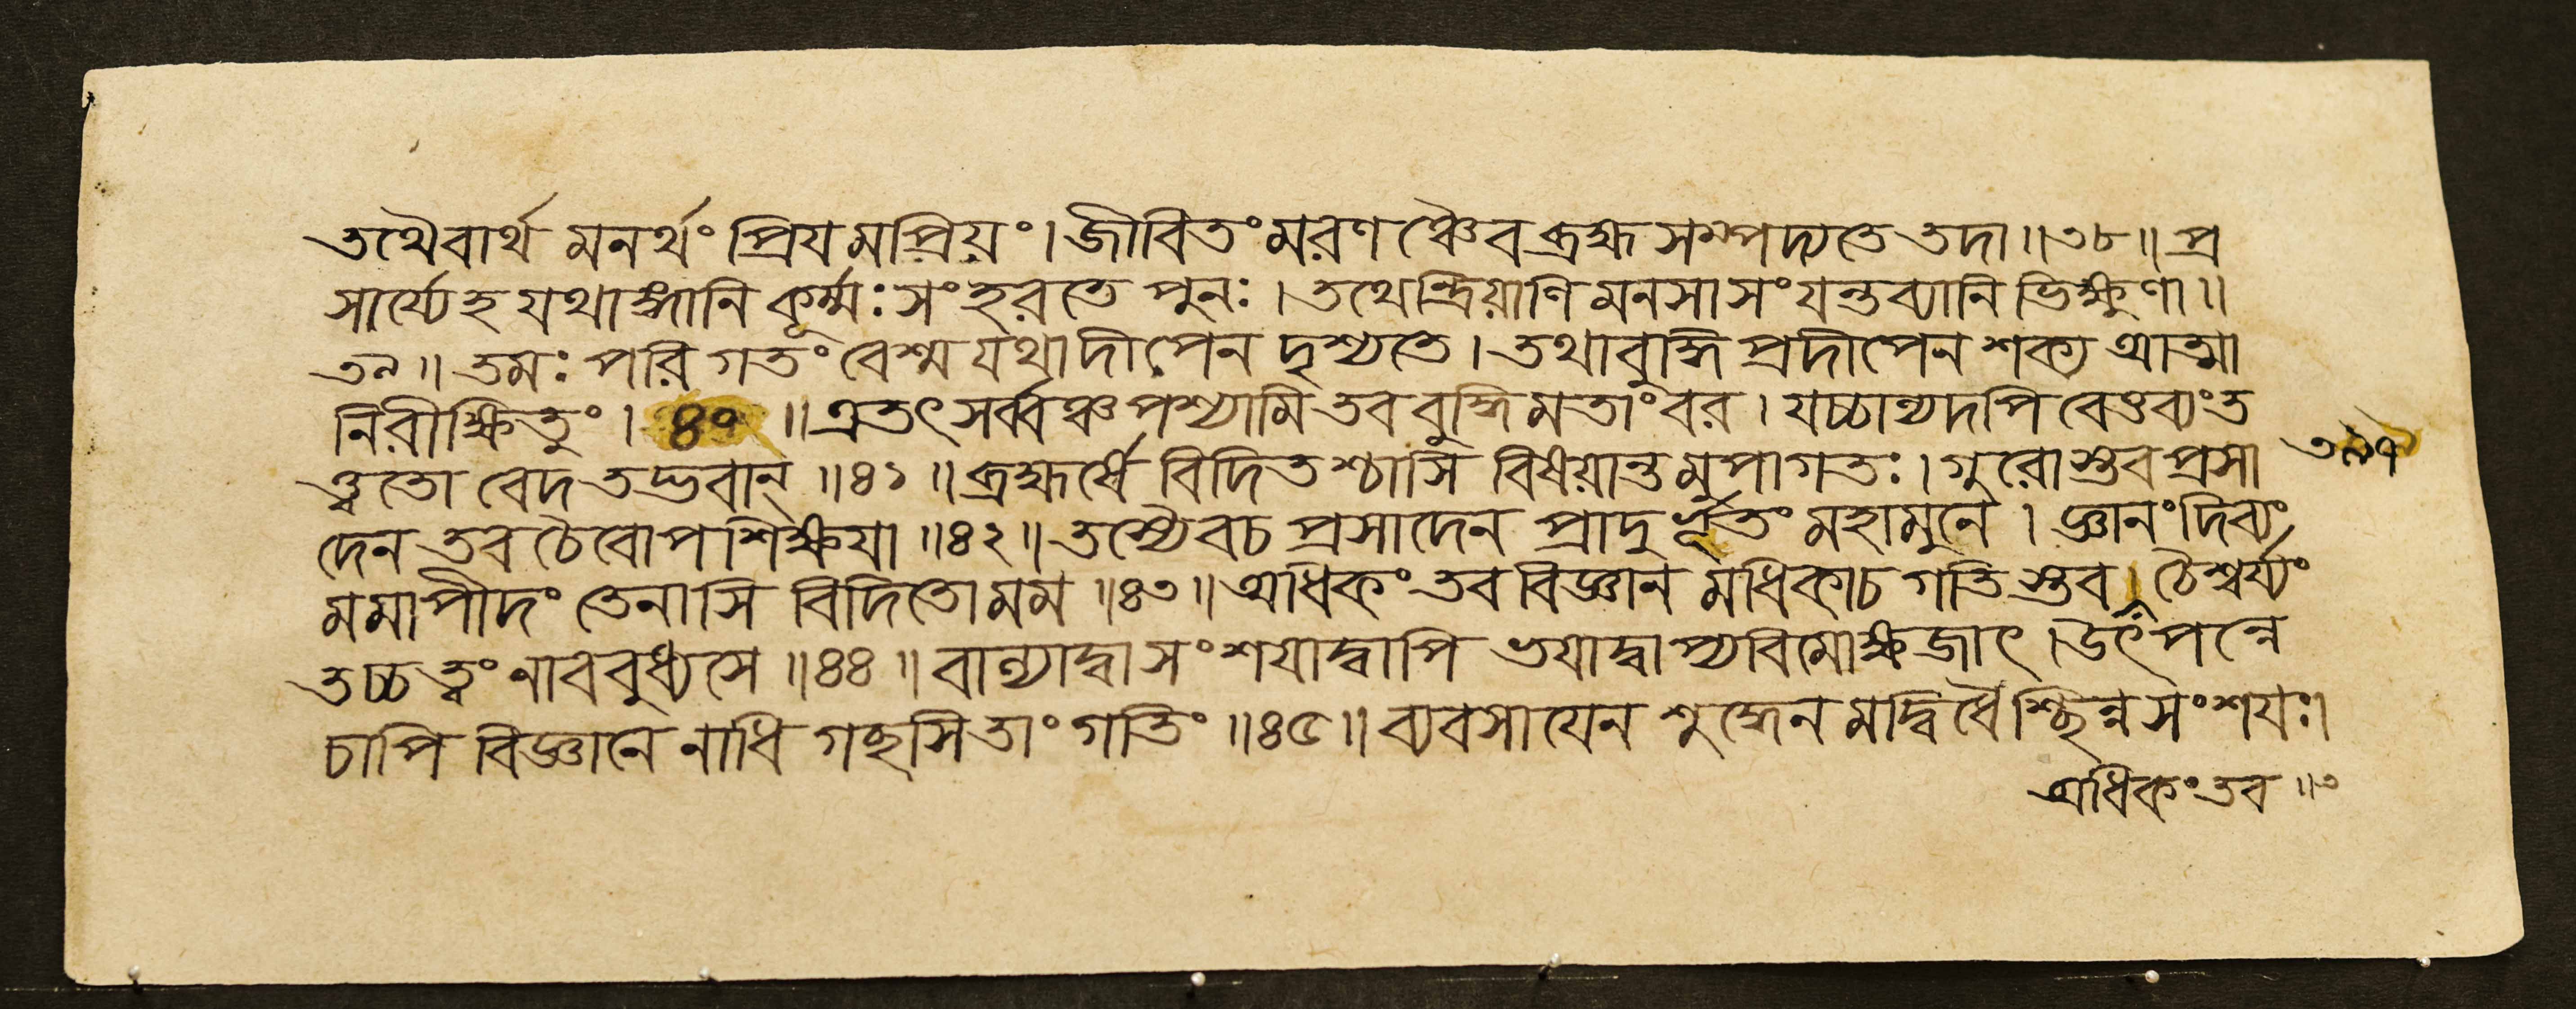 তথৈবার্থ মনর্থং প্রিযমপ্রিয়ং।জীবিতং মরণ ঞ্চৈব ব্রহ্ম সম্পদ্যতে তদা॥৩৮॥ প্র
সার্য্যেহ যথাঙ্গানি কূর্ম্মঃ সংহরতে পুনঃ।তথেন্দ্রিয়াণি মনসা সংযন্তব্যানি ভিক্ষুণা॥
৩৯॥ তমঃ পরি গতং বেশ্ম যথা দীপেন দৃশ্যতে। তথা বুদ্ধি প্রদীপেন শক্য আত্মা
নিরীক্ষিতুং। ৪০ ॥এতৎ সর্ব্বঞ্চ পশ্যামি তব বুদ্ধি মতাং বর। যচ্চান্যদপি বেত্তব্যং ত
ত্ত্বতো বেদ তদ্ভবান্॥৪১॥ব্রহ্মর্ষে বিদিত শ্চাসি বিষয়ান্ত মুপাগতঃ।গুরোস্তব প্রসা
৩৯৭
দেন তব চৈবোপ শিক্ষযা॥৪২॥তস্যৈবচ প্রসাদেন প্রাদুর্ভূতং মহামুনে। জ্ঞানং দিব্যং
মমাপীদং তেনাসি বিদিতো মম॥৪৩॥অধিকং তব বিজ্ঞান মধিকাচ গতি স্তব। ঐশ্বর্য্যং
তচ্চ ত্বং নাববুধ্যসে॥৪৪॥বাল্যাদ্বা সংশযাদ্বাপি ভযাদ্বাপ্যবিমোক্ষজাৎ।উৎপন্নে
চাপি বিজ্ঞানে নাধি গচ্ছসি তাং গতিং॥৪৫॥ব্যবসাযেন শুদ্ধেন মদ্বিধৈশ্ছিন্ন সংশযঃ।
অধিকং তব॥৩